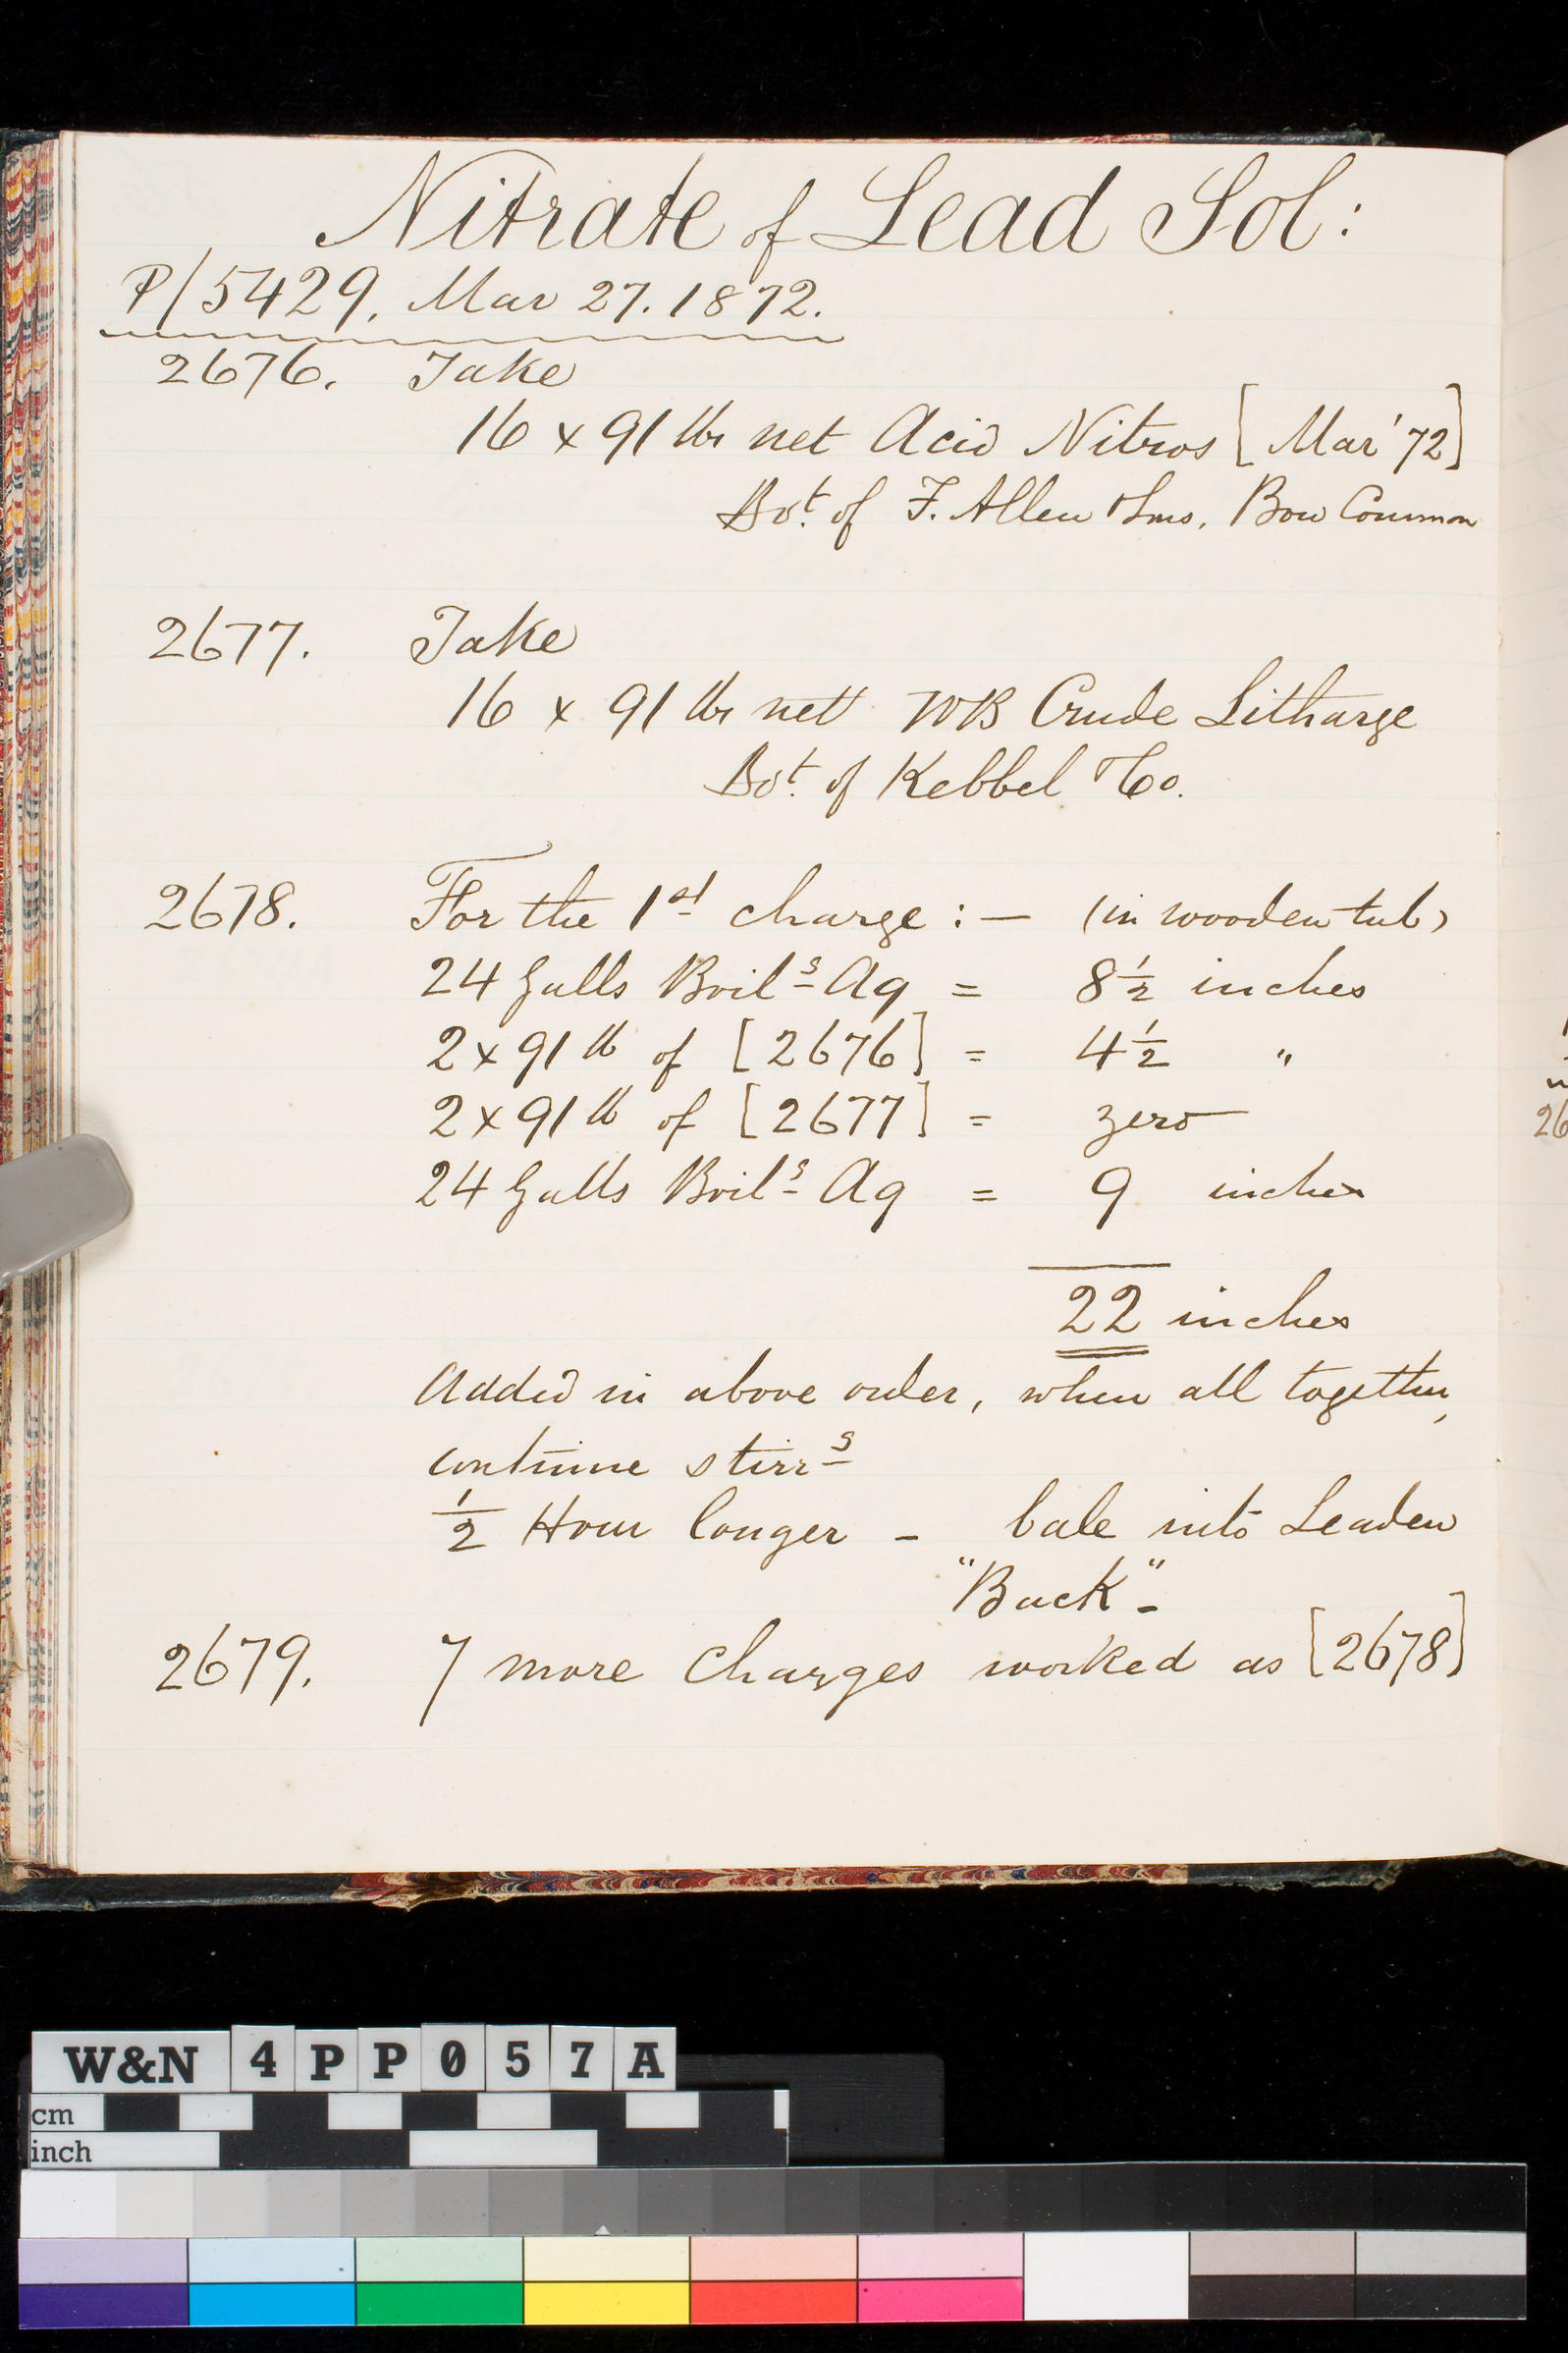 Nitrate of Lead Sol:
P/5429. Mar 27. 1872.
2676. Take
16 x 91 lbs net Acid Nitros [Mar '72]
Bot. of F. Allen & Sons, Bow Common
2677. Take
16 x 91 lbs nett WB Crude Litharge
Bot. of Kebbel & Co.
2678. For the 1st charge :— (in wooden tub)
24 Galls Boilg Aq = 8½ inches
2 x 91 lb of [2676] = 4½ "
2 x 91 lb of [2677] = zero
24 Galls Boilg Aq = 9 inches
22 inches
Added in above order, when all together,
continue stirrg
½ Hour longer - bale into Leaden
"Back"-
2679. 7 more Charges worked as [2678]
26
W&N 4PP057A
cm
inch